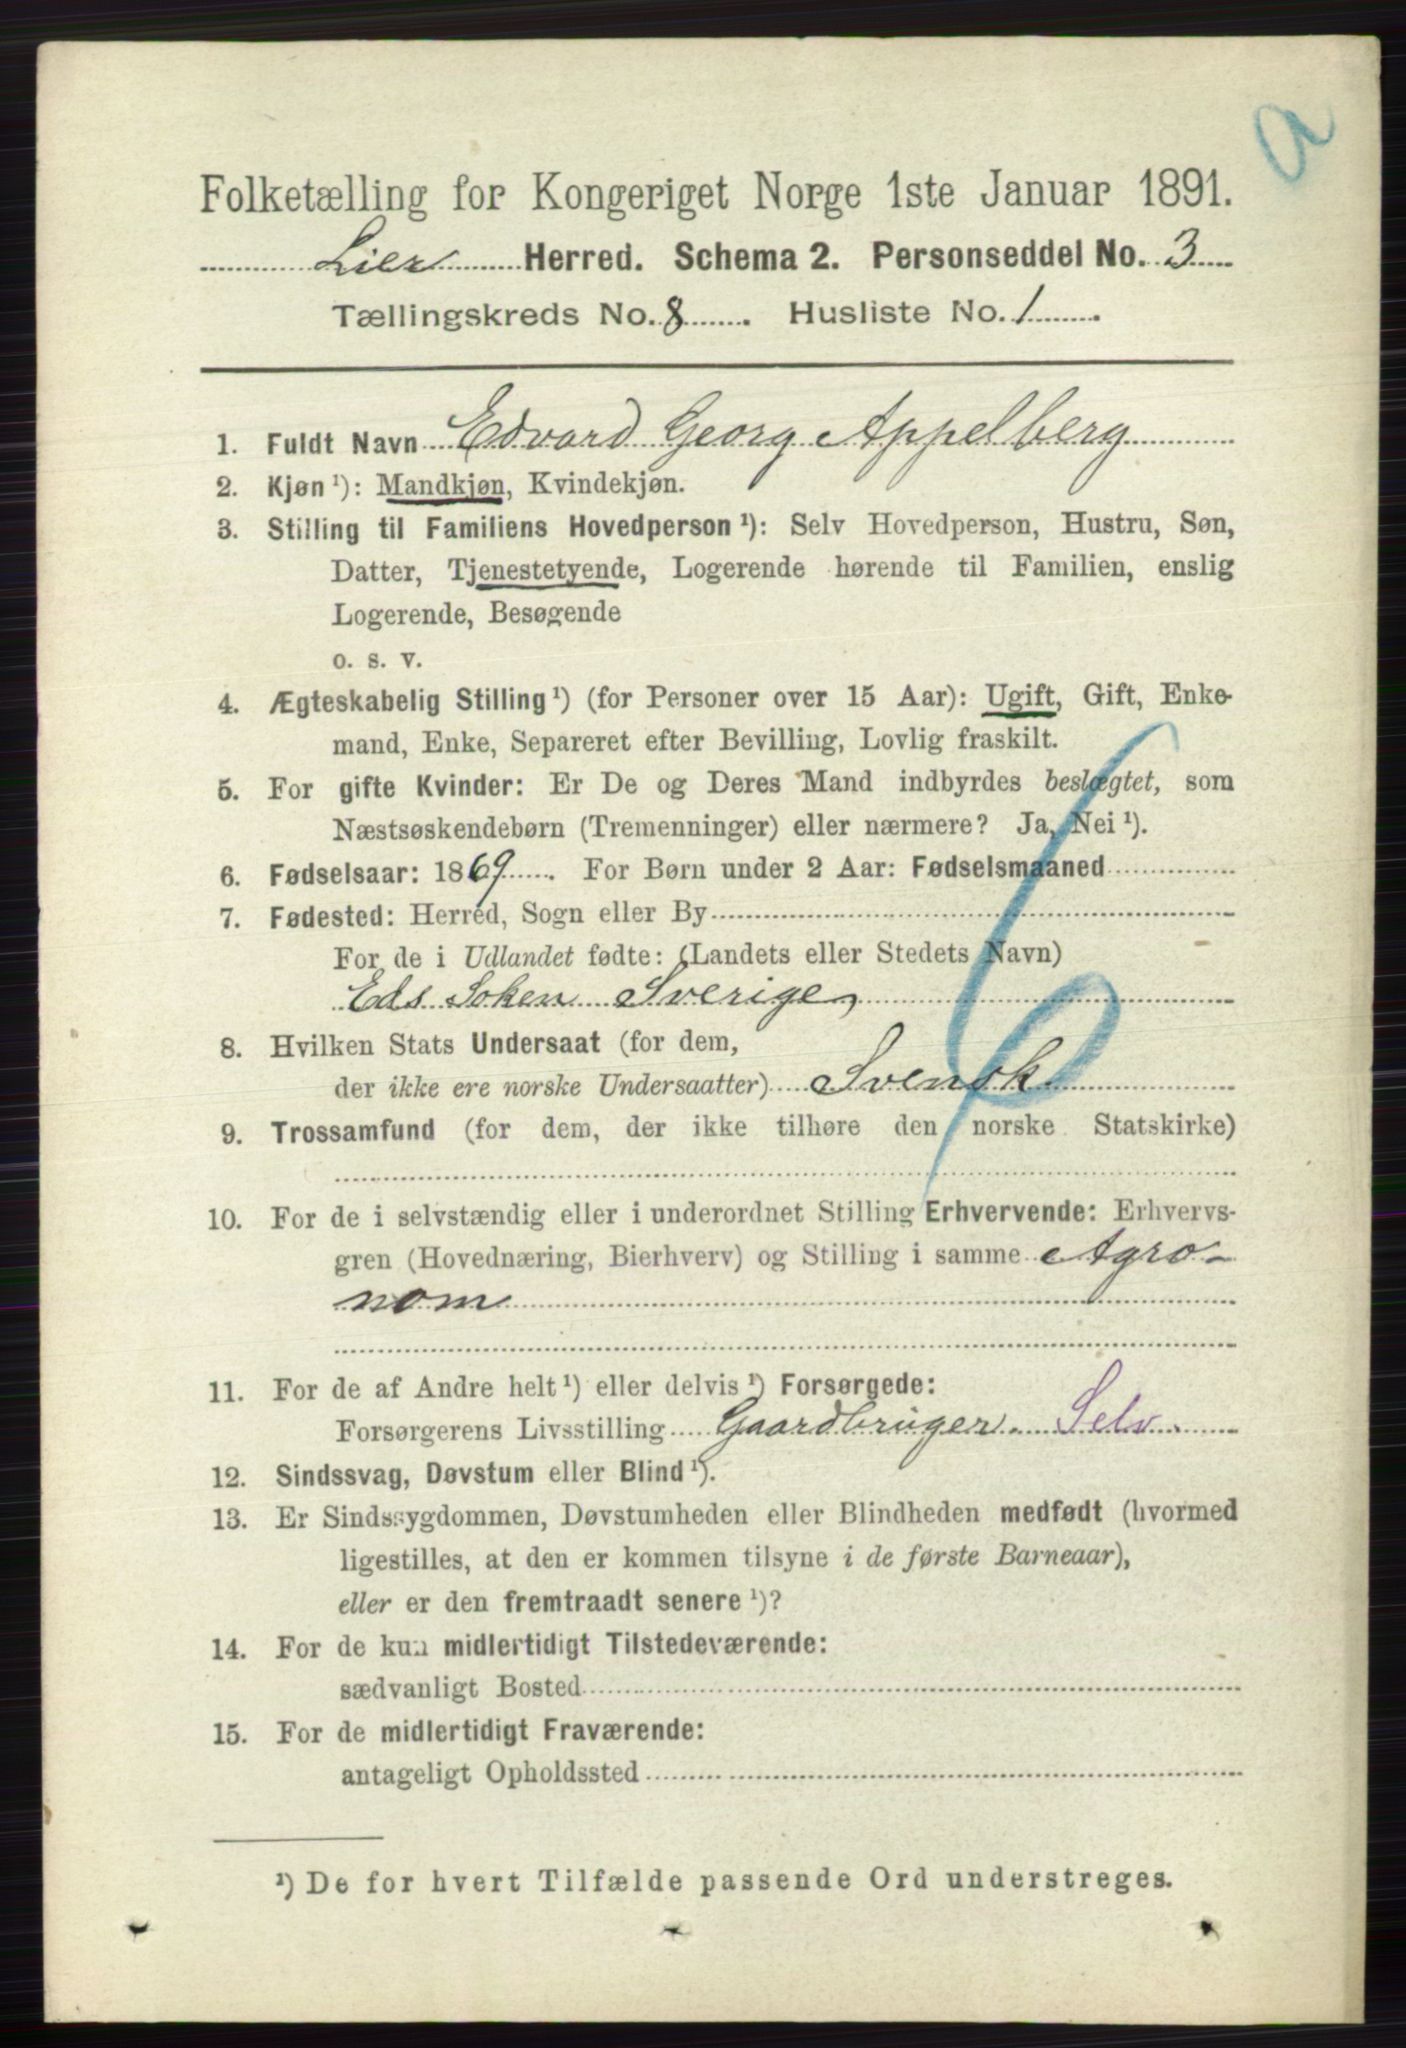 a
Folketælling for Kongeriget Norge 1ste Januar 1891.
Lier Herred. Schema 2. Personseddel No. 3
Tællingskreds No. 8. Husliste No. 1.
1. Fuldt Navn Edvard Georg Appelberg
2. Kjøn ¹): Mandkjøn, Kvindekjøn.
3. Stilling til Familiens Hovedperson ¹): Selv Hovedperson, Hustru, Søn,
Datter, Tjenestetyende, Logerende hørende til Familien, enslig
Logerende, Besøgende
o. s. v.
4. Ægteskabelig Stilling ¹) (for Personer over 15 Aar): Ugift, Gift, Enke-
mand, Enke, Separeret efter Bevilling, Lovlig fraskilt.
5. For gifte Kvinder: Er De og Deres Mand indbyrdes beslægtet, som
Næstsøskendebørn (Tremenninger) eller nærmere? Ja, Nei ¹).
6. Fødselsaar: 1869. For Børn under 2 Aar: Fødselsmaaned
7. Fødested: Herred, Sogn eller By
For de i Udlandet fødte: (Landets eller Stedets Navn)
Eds Soken Sverige,
8. Hvilken Stats Undersaat (for dem,
der ikke ere norske Undersaatter) Svensk
9. Trossamfund (for dem, der ikke tilhøre den norske Statskirke)
10. For de i selvstændig eller i underordnet Stilling Erhvervende: Erhvervs-
gren (Hovednæring, Bierhverv) og Stilling i samme Agro-
nom
11. For de af Andre helt ¹) eller delvis ¹) Forsørgede:
Forsørgerens Livsstilling Gaardbruger. Selv.
12. Sindssvag, Døvstum eller Blind ¹).
13. Er Sindssygdommen, Døvstumheden eller Blindheden medfødt (hvormed
ligestilles, at den er kommen tilsyne i de første Barneaar),
eller er den fremtraadt senere ¹)?
14. For de kun midlertidigt Tilstedeværende:
sædvanligt Bosted
15. For de midlertidigt Fraværende:
antageligt Opholdssted
¹) De for hvert Tilfælde passende Ord understreges.